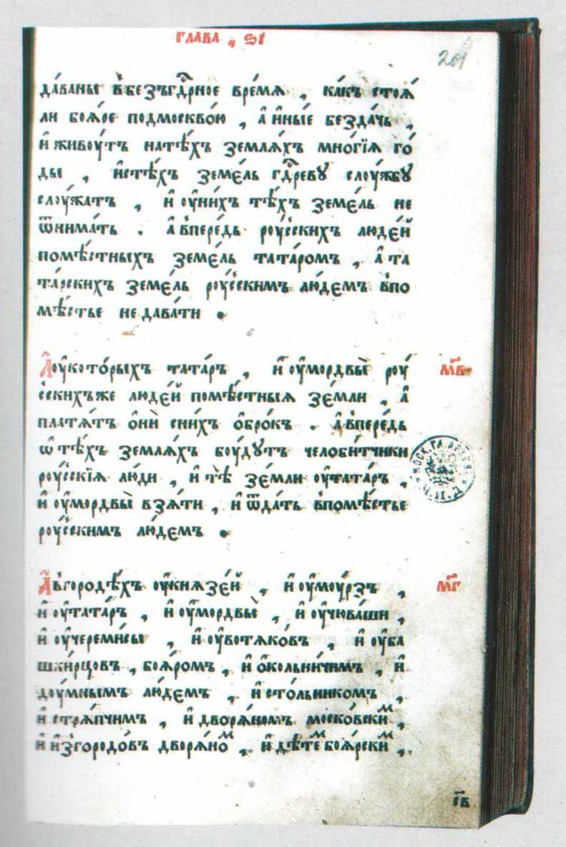 ГЛАВА , ѕ҃і
201
да́ваны в̾безъгд҇рное вре́мѧ , ка́къ стоѧ́
ли боѧ́ре подмоскво́ю , а҆ и҆ны́е безда́чь ,
и҆ живоу́тъ натѣ́хъ земла́хъ мно́гїѧ го́
ды , и҆стѣ́хъ земе́ль гд҇реву слоу́жбу
слоу́жатъ , и҆ оу҆ни́хъ тѣ́хъ земе́ль не
ѿнима́ть . а҆ впере́дь роу́сскихъ люде́й
помѣ́стныхъ земе́ль тата́ромъ , а҆ та
та́рскихъ земе́ль роу́сскимъ лю́демъ в̾по
мѣ́стье не дава́ти .
А҆оу҆кото́рыхъ тата́ръ , и҆ оу҆мордвы̀ роу́
сскихъже люде́й помѣ́стныѧ зе́мли , а҆
пла́тѧтъ ѻ҆нѝ сни́хъ ѻ҆бро́къ . а҆ впере́дь
ѡ҆ тѣ́хъ земла́хъ боу́дутъ челоби́тчики
роу́сскїѧ лю́ди , и҆ тѣ̀ зе́мли оу҆тата́ръ ,
и҆ оу҆мордвы̀ взѧ́ти , и҆ ѿда́ть в̾помѣ́стье
роу́сскимъ лю́демъ .
м҃в
А҆ в̾городѣ́хъ оу҆кнѧзе́й , и҆ оу҆моу́рзъ ,
и҆ оу҆тата́ръ , и҆ оу҆мордвы̀ , и҆ оу҆чюва́ши ,
и҆ оу҆череми́сы , и҆ оу҆вотѧко́въ , и҆ оу҆ба
шки́рцовъ , боѧ́ромъ , и҆ ѻ҆ко́льничимъ , и҆
доу́мнымъ лю́демъ , и҆ сто́льникомъ ,
и҆ стрѧ́пчимъ , и҆ дворѧ́номъ моско́вскимъ ,
и҆ и҆згородо́въ дворѧ́номъ , и҆ дѣ́темъ боѧ́рскимъ ,
м҃г